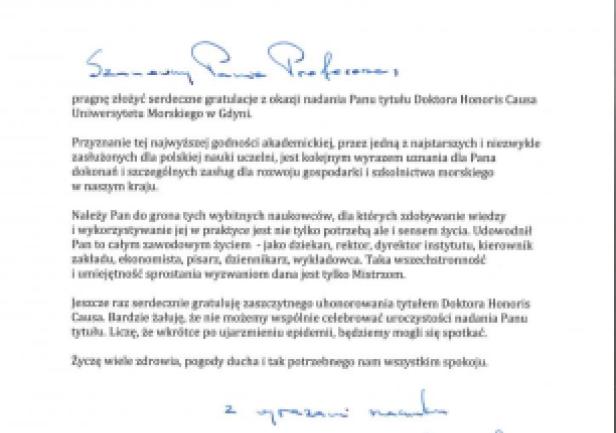 Szanowny Panie Profesorze
pragnę złożyć serdeczne gratulacje z okazji nadania Panu tytułu Doktora Honoris Causa
Uniwersytetu Morskiego w Gdyni.
Przyznanie tej najwyższej godności akademickiej, przez jedną z najstarszych i niezwykle
zasłużonych dla polskiej nauki uczelni, jest kolejnym wyrazem uznania dla Pana
dokonań i szczególnych zasług dla rozwoju gospodarki i szkolnictwa morskiego
w naszym kraju.
Należy Pan do grona tych wybitnych naukowców, dla których zdobywanie wiedzy
i wykorzystywanie jej w praktyce jest nie tylko potrzebą ale i sensem życia. Udowodnił
Pan to całym zawodowym życiem - jako dziekan, rektor, dyrektor instytutu, kierownik
zakładu, ekonomista, pisarz, dziennikarz, wykładowca. Taka wszechstronność
i umiejętność sprostania wyzwaniom dana jest tylko Mistrzom.
Jeszcze raz serdecznie gratuluję zaszczytnego uhonorowania tytułem Doktora Honoris
Causa. Bardzie żałuję, że nie możemy wspólnie celebrować uroczystości nadania Panu
tytułu. Liczę, że wkrótce po ujarzmieniu epidemii, będziemy mogli się spotkać.
Życzę wiele zdrowia, pogody ducha i tak potrzebnego nam wszystkim spokoju.
z wyrazami szacunku